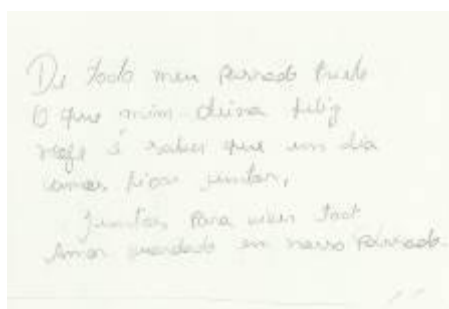 De todo meu passado tudo
O que mim deixa feliz
hoje é saber que um dia
vamos ficar juntos,
Juntos para viver todo
Amor guardado em nosso passado.